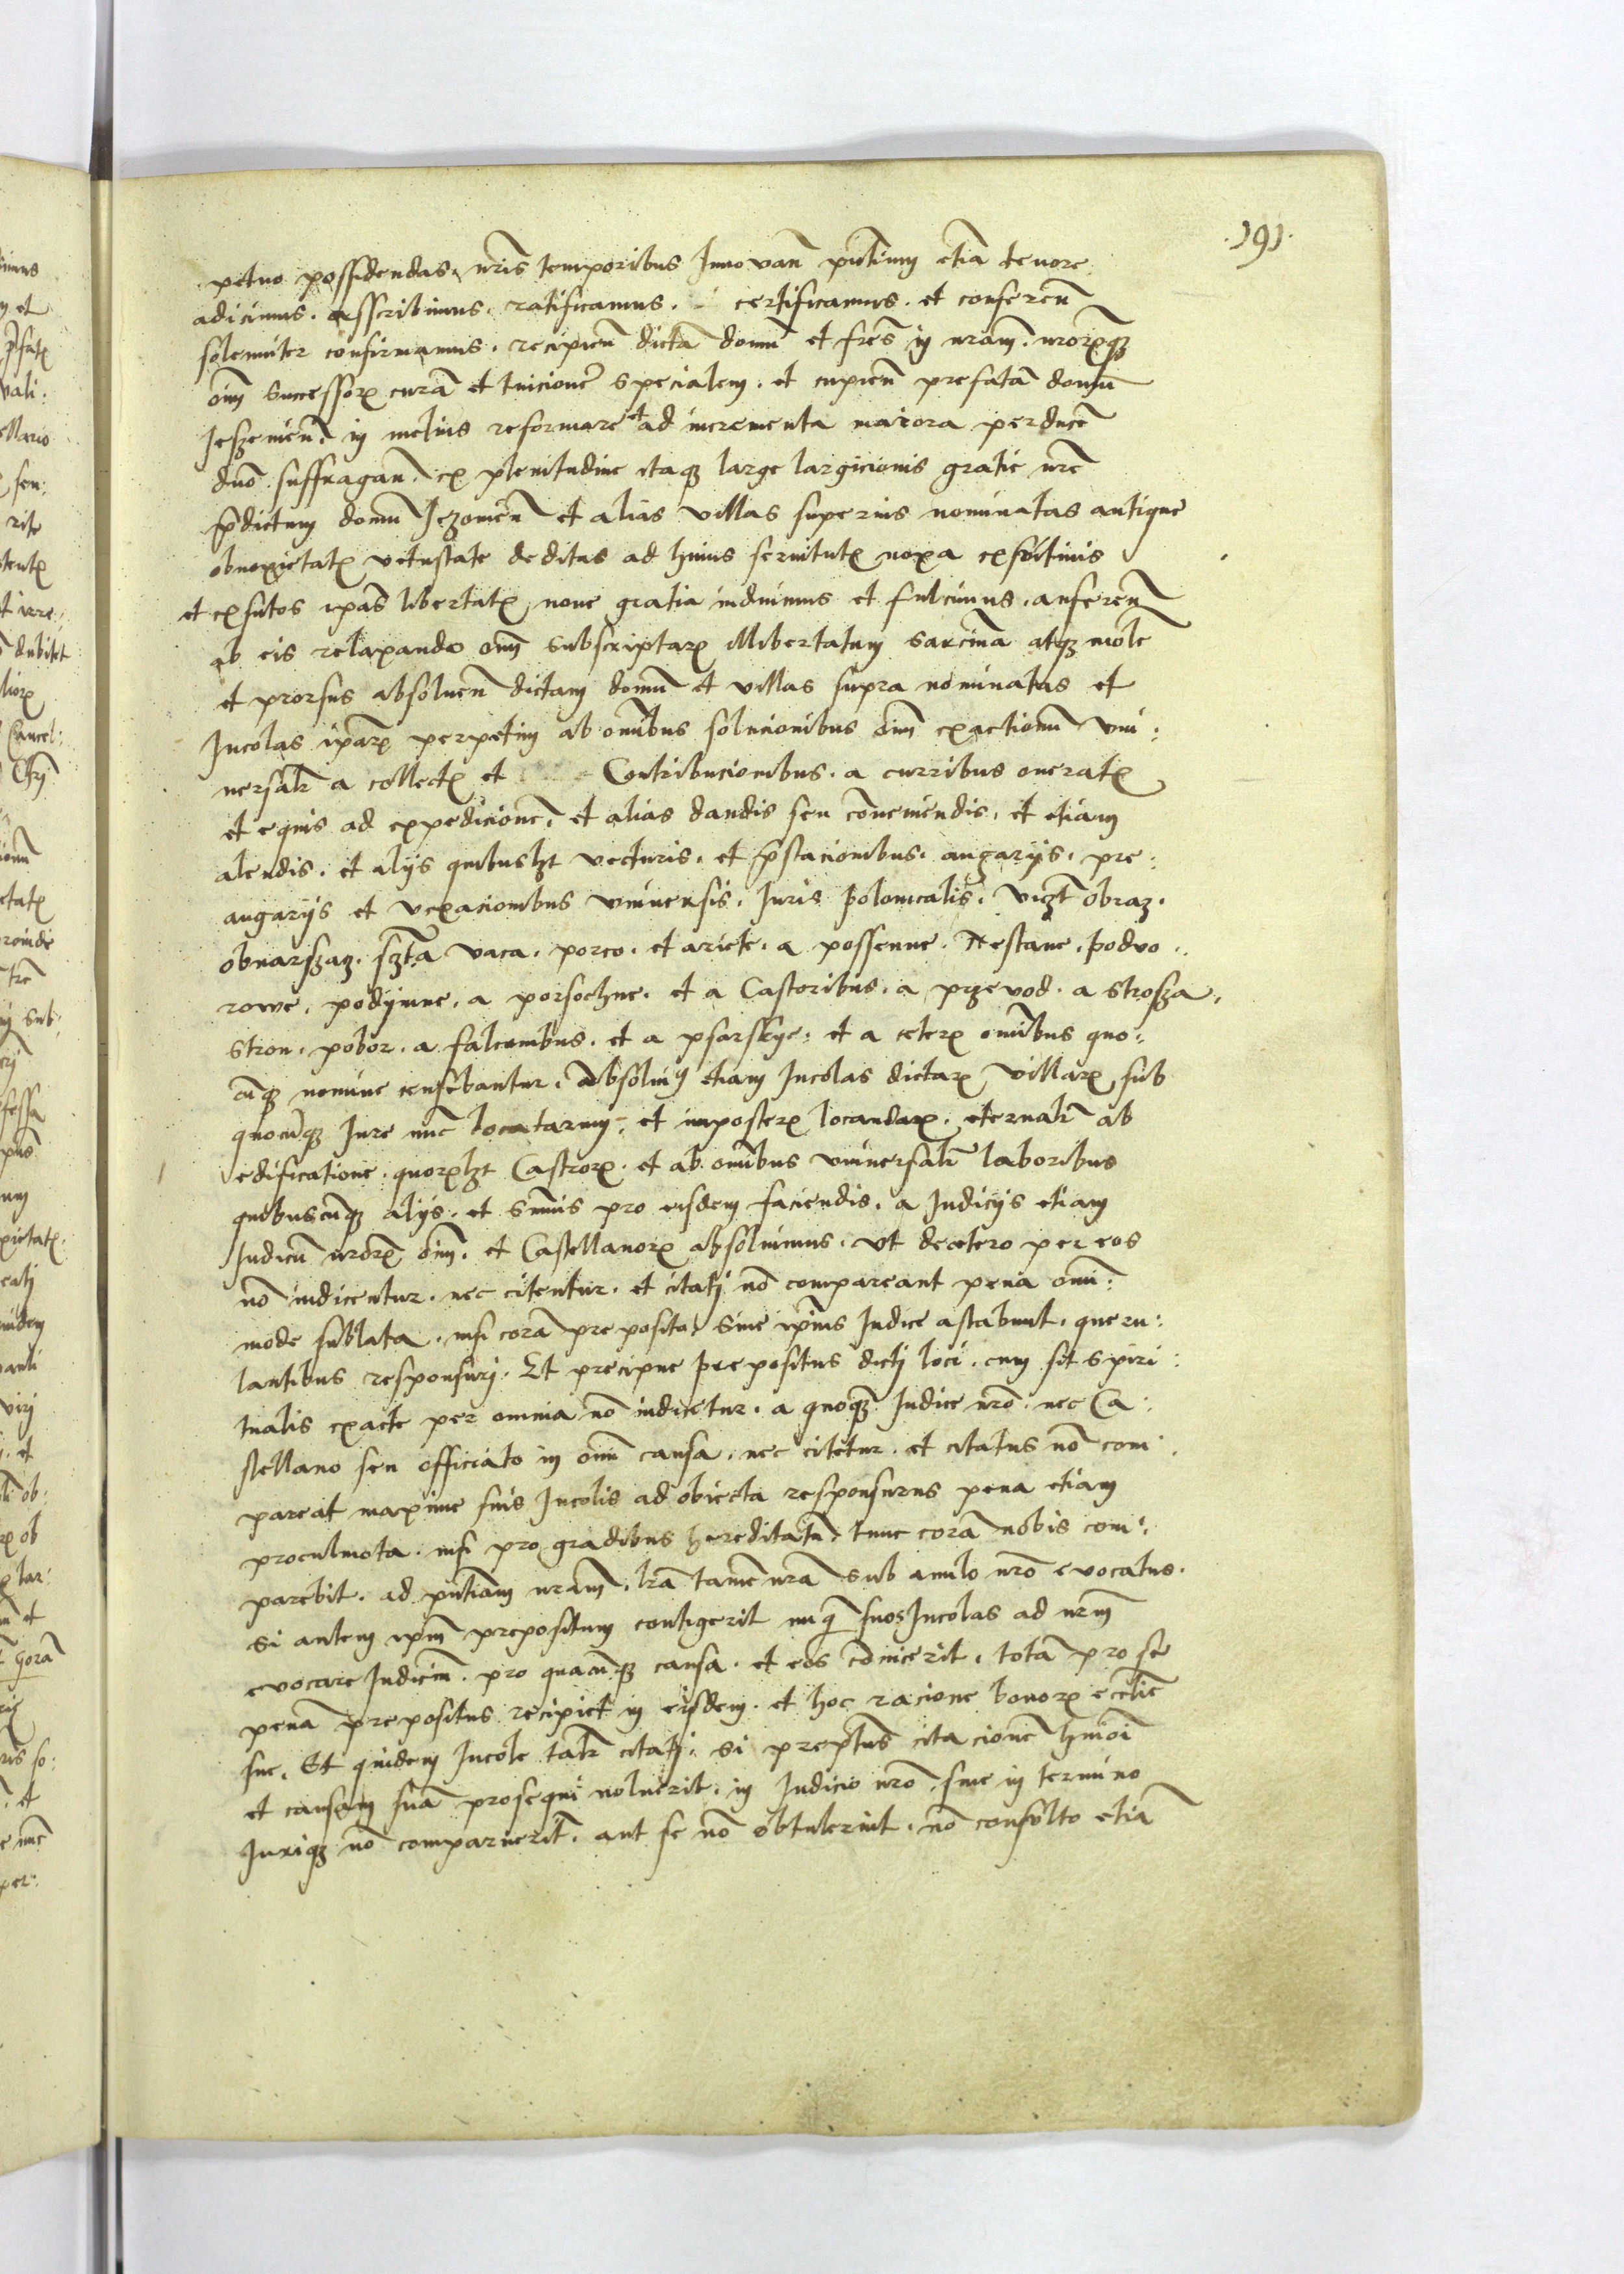 .191.
petuo possidendas, nris temporibus Innovan̄ pn̄tium etiā tenore
adicimus. asscribimus. ratificamus. certificamus. et conferen̄
solemniter confirmamus. recipien̄ dictā domū et frēs in nram̄. nrorꝝqꝫ
oīm successorꝝ curā et tuicionē specialem. et cupien̄ prefatā domū
Jeszemen̄. in melius reformare et ad incrementa maiora perducē
dn̄o suffragan̄. ex plenitudine itaqꝫ large largicionis gratie nrē
p̄dictum domū Jezomen̄ et alias villas superius nominatas antique
obnoxietatꝭ vetustate deditas ad huius seruitutꝭ noxa exsolvimus
et exsutos ipās libertatꝭ noue gratia induimus et fulcimus. auferen̄
ab eis relaxando om̄ subscriptarꝝ illibertatum sarcinā atqꝫ molē
et prorsus absoluen̄ dictam domū et villas supra nominatas et
Incolas ip̄arꝝ perpetim ab om̄ibus solucionibus oīm exactionū vni:
uersalr̄ a collectꝭ et Contribucionibus. a curribus oneratꝭ
et equis ad expedicionē. et alias dandis seu conuemendis. et etiam
alendis. et alijs quibuslꝫt vecturis. et p̄stacionibus. angarijs. pre:
angarijs et vexacionibus vniuersis. Juris polonicalis. vizt obraz.
obnarszaz. szta vaca. porco. et ariete. a possenne. Nestane. podvo:
rowe. podymne. a porsochne. et a Castoribus. a przevod. a strosza.
stron. pobor. a falconibus. et a psarskye: et a ceterꝭ om̄ibus quo:
cūqꝫ nomine censebantur. Absoluim̄ etiam Incolas dictarꝝ villarꝝ sub
quocūqꝫ Jure nūc locatarum. et imposterꝝ locandarꝝ. eternalr̄ ab
edificatione. quorꝝlꝫt Castrorꝝ. et ab om̄ibus vniuersalr̄ laboribus
quibuscūqꝫ alijs. et summis pro eisdem faciendis. a Judicijs etiam
Judicū nrorꝝ oīm. et Castellanorꝝ absoluimus. vt decetero per eos
nō iudicentur. nec citentur. et citatj nō compareant pena omni:
mode sublata. nisi corā preposito, siue ip̄ius Judice astabunt. queru:
lantibus responsurj. Et precipue prepositus dictj loci. cum sit spiri:
tualis exacte per omnia nō iudicetur. a quoqꝫ Judice nr̄o. nec Ca:
stellano seu officiato in om̄i causa. nec citetur. et citatus nō com:
pareat maxime suis Incolis ad obiecta responsurus pena etiam
proculmota. nisi pro gradibus hereditatū, tunc corā nobis com:
parebit. ad pn̄tiam nram̄. lr̄a tamē nrā sub anulo nr̄o evocatus.
si autem ip̄m prepositum contigerit nūqꝫ suos Incolas ad nrm̄
evocare Judicium. pro quacūqꝫ causa. et eos cōuicerit. totā pro se
penā prepositus recipiet in eisdem. et hoc racione bonorꝝ ecclīe
sue. Et quidem Incole talr̄ citatj. si preptus citacionē hmōi
et causam suā prosequi noluerit. in Judicio nr̄o. siue in termino
Juriqꝫ nō comparuerit. aut se nō obtulerint. nō consulto etiā